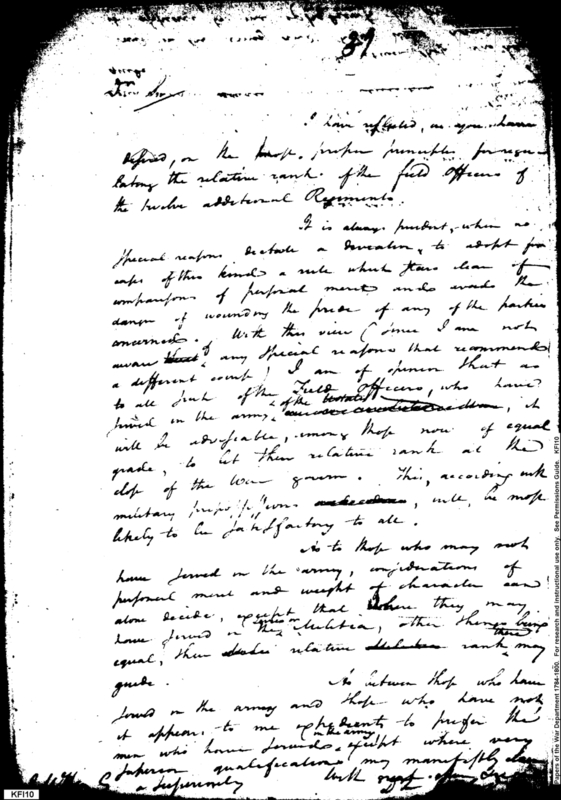 31
I have reflected, as you have
desired, on the most proper principles for regu
lating the relative rank of the field Officers of
the twelve additional Regiments.
It is always prudent, when no
special reasons dictate a deviation, to adopt for
cases of this kind a rule which steers clear of
comparisons of personal merit and avoids the
danger of wounding the pride of any of the parties
concerned. With this view (since I am not
aware of any special reasons that recommend
a different course) I am of opinion that as
to all such of the Field Officers, who have
served in the army of the United, it
will be adviseable, among those now of equal
grade, to let their relative rank at the
close of the War govern. This, according with
military prepossessions, will be most
likely to be satisfactory to all.
As to those who may not
have served in the army, considerations of
personal merit and weight of character can
alone decide, except that where they may
have served in the Militia, other things being
equal, their relative rank there may
guide.
As between those who have
served in the army and those who have not
it appears to me expedient to prefer the
men who have served in the army except where very
superior qualifications may manifestly claim
a superiority
With
KFI10
Papers of the War Department 1784-1800. For research and instructional use only. See Permissions Guide. KFI10